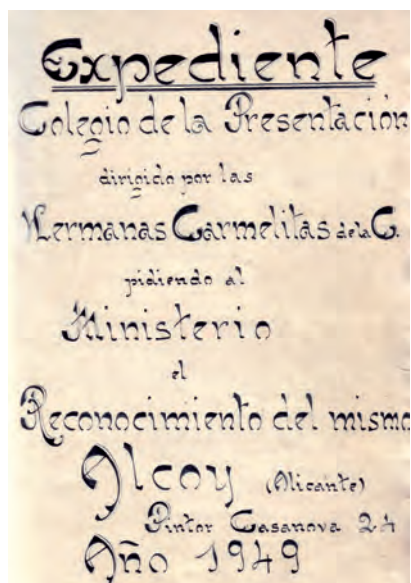 Expediente
Colegio de la Presentación
dirigido por las
Hermanas Carmelitas de la C.
pidiendo al
Ministerio
el
Reconocimiento del mismo
Alcoy (Alicante)
Pintor Casanova 24
Año 1949